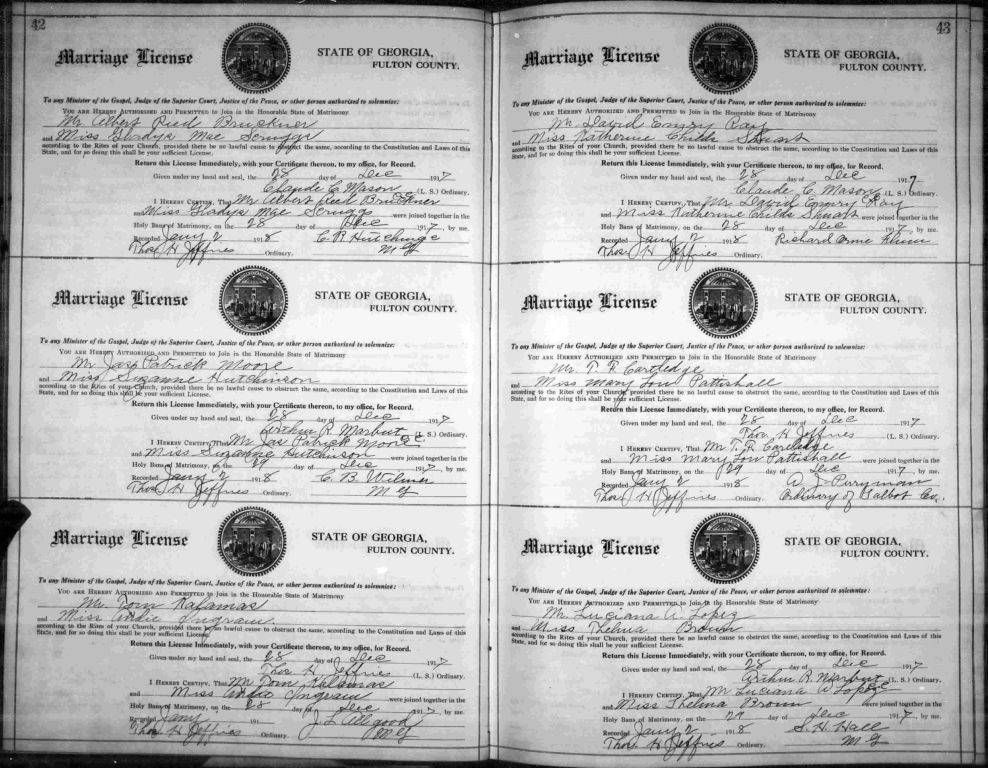 42
Marriage License
STATE OF GEORGIA,
FULTON COUNTY.
To any Minister of the Gospel, Judge of the Superior Court, Justice of the Peace, or other person authorized to solemnize:
YOU ARE HEREBY AUTHORIZED AND PERMITTED to Join in the Honorable State of Matrimony
Mr Albert Reid Bruckner
and Miss Gladys Mae Scruggs
according to the Rites of your Church, provided there be no lawful cause to obstruct the same, according to the Constitution and Laws of this
State, and for so doing this shall be your sufficient License.
Return this License Immediately, with your Certificate thereon, to my office, for Record.
Given under my hand and seal, the 28 day of Dec 1917
Claude C. Mason (L. S.) Ordinary.
I HEREBY CERTIFY, That Mr Albert Reid Bruckner
and Miss Gladys Mae Scruggs were joined together in the
Holy Bans of Matrimony, on the 28 day of Dec 1917, by me.
Recorded Jany 2 1918 C. R. Hutchings
Thos H Jeffries Ordinary. M G
Marriage License
STATE OF GEORGIA,
FULTON COUNTY.
To any Minister of the Gospel, Judge of the Superior Court, Justice of the Peace, or other person authorized to solemnize:
YOU ARE HEREBY AUTHORIZED AND PERMITTED to Join in the Honorable State of Matrimony
Mr Jas Patrick Moore
and Miss Suzanne Hutchinson
according to the Rites of your Church, provided there be no lawful cause to obstruct the same, according to the Constitution and Laws of this
State, and for so doing this shall be your sufficient License.
Return this License Immediately, with your Certificate thereon, to my office, for Record.
Given under my hand and seal, the 28 day of Dec 1917
Arthur R. Marbut (L. S.) Ordinary.
I HEREBY CERTIFY, That Mr Jas Patrick Moore
and Miss Suzanne Hutchinson were joined together in the
Holy Bans of Matrimony, on the 29 day of Dec 1917, by me.
Recorded Jany 2 1918 C. B. Wilmer
Thos H Jeffries Ordinary. M G
Marriage License
STATE OF GEORGIA,
FULTON COUNTY.
To any Minister of the Gospel, Judge of the Superior Court, Justice of the Peace, or other person authorized to solemnize:
YOU ARE HEREBY AUTHORIZED AND PERMITTED to Join in the Honorable State of Matrimony
Mr. Tom Kalamas
and Miss Addie Ingram
according to the Rites of your Church, provided there be no lawful cause to obstruct the same, according to the Constitution and Laws of this
State, and for so doing this shall be your sufficient License.
Return this License Immediately, with your Certificate thereon, to my office, for Record.
Given under my hand and seal, the 28 day of Dec 1917
Thos H Jeffries (L. S.) Ordinary.
I HEREBY CERTIFY, That Mr Tom Kalamas
and Miss Addie Ingram were joined together in the
Holy Bans of Matrimony, on the 28 day of Dec 1917, by me.
Recorded Jany 191 J L Allgood
Thos H Jeffries Ordinary. M G
43
Marriage License
STATE OF GEORGIA,
FULTON COUNTY.
To any Minister of the Gospel, Judge of the Superior Court, Justice of the Peace, or other person authorized to solemnize:
YOU ARE HEREBY AUTHORIZED AND PERMITTED to Join in the Honorable State of Matrimony
Mr. David Emory Ray
and Miss Katherine Childs Shuats
according to the Rites of your Church, provided there be no lawful cause to obstruct the same, according to the Constitution and Laws of this
State, and for so doing this shall be your sufficient License.
Return this License Immediately, with your Certificate thereon, to my office, for Record.
Given under my hand and seal, the 28 day of Dec 1917
Claude C. Mason (L. S.) Ordinary.
I HEREBY CERTIFY, That Mr. David Emory Ray
and Miss Katherine Childs Shuats were joined together in the
Holy Bans of Matrimony, on the 28 day of Dec 1917, by me.
Recorded Jany 2 1918 Richard Orme Flinn
Thos H Jeffries Ordinary.
Marriage License
STATE OF GEORGIA,
FULTON COUNTY.
To any Minister of the Gospel, Judge of the Superior Court, Justice of the Peace, or other person authorized to solemnize:
YOU ARE HEREBY AUTHORIZED AND PERMITTED to Join in the Honorable State of Matrimony
Mr. T. R. Cartledge
and Miss Mary Lou Pattishall
according to the Rites of your Church, provided there be no lawful cause to obstruct the same, according to the Constitution and Laws of this
State, and for so doing this shall be your sufficient License.
Return this License Immediately, with your Certificate thereon, to my office, for Record.
Given under my hand and seal, the 28 day of Dec 1917
Thos H Jeffries (L. S.) Ordinary.
I HEREBY CERTIFY, That Mr T. R. Cartledge
and Miss Mary Lou Pattishall were joined together in the
Holy Bans of Matrimony, on the 29 day of Dec 1917, by me.
Recorded Jany 2 1918 W J Perryman
Thos H Jeffries Ordinary. Ordinary of Talbot Co.
Marriage License
STATE OF GEORGIA,
FULTON COUNTY.
To any Minister of the Gospel, Judge of the Superior Court, Justice of the Peace, or other person authorized to solemnize:
YOU ARE HEREBY AUTHORIZED AND PERMITTED to Join in the Honorable State of Matrimony
Mr. Luciana A. Lopez
and Miss Thelma Brown
according to the Rites of your Church, provided there be no lawful cause to obstruct the same, according to the Constitution and Laws of this
State, and for so doing this shall be your sufficient License.
Return this License Immediately, with your Certificate thereon, to my office, for Record.
Given under my hand and seal, the 28 day of Dec 1917
Arthur R. Marbut (L. S.) Ordinary.
I HEREBY CERTIFY, That Mr Luciana A Lopez
and Miss Thelma Brown were joined together in the
Holy Bans of Matrimony, on the 29 day of Dec 1917, by me.
Recorded Jany 2 1918 S. H. Hall
Thos H Jeffries Ordinary. M G